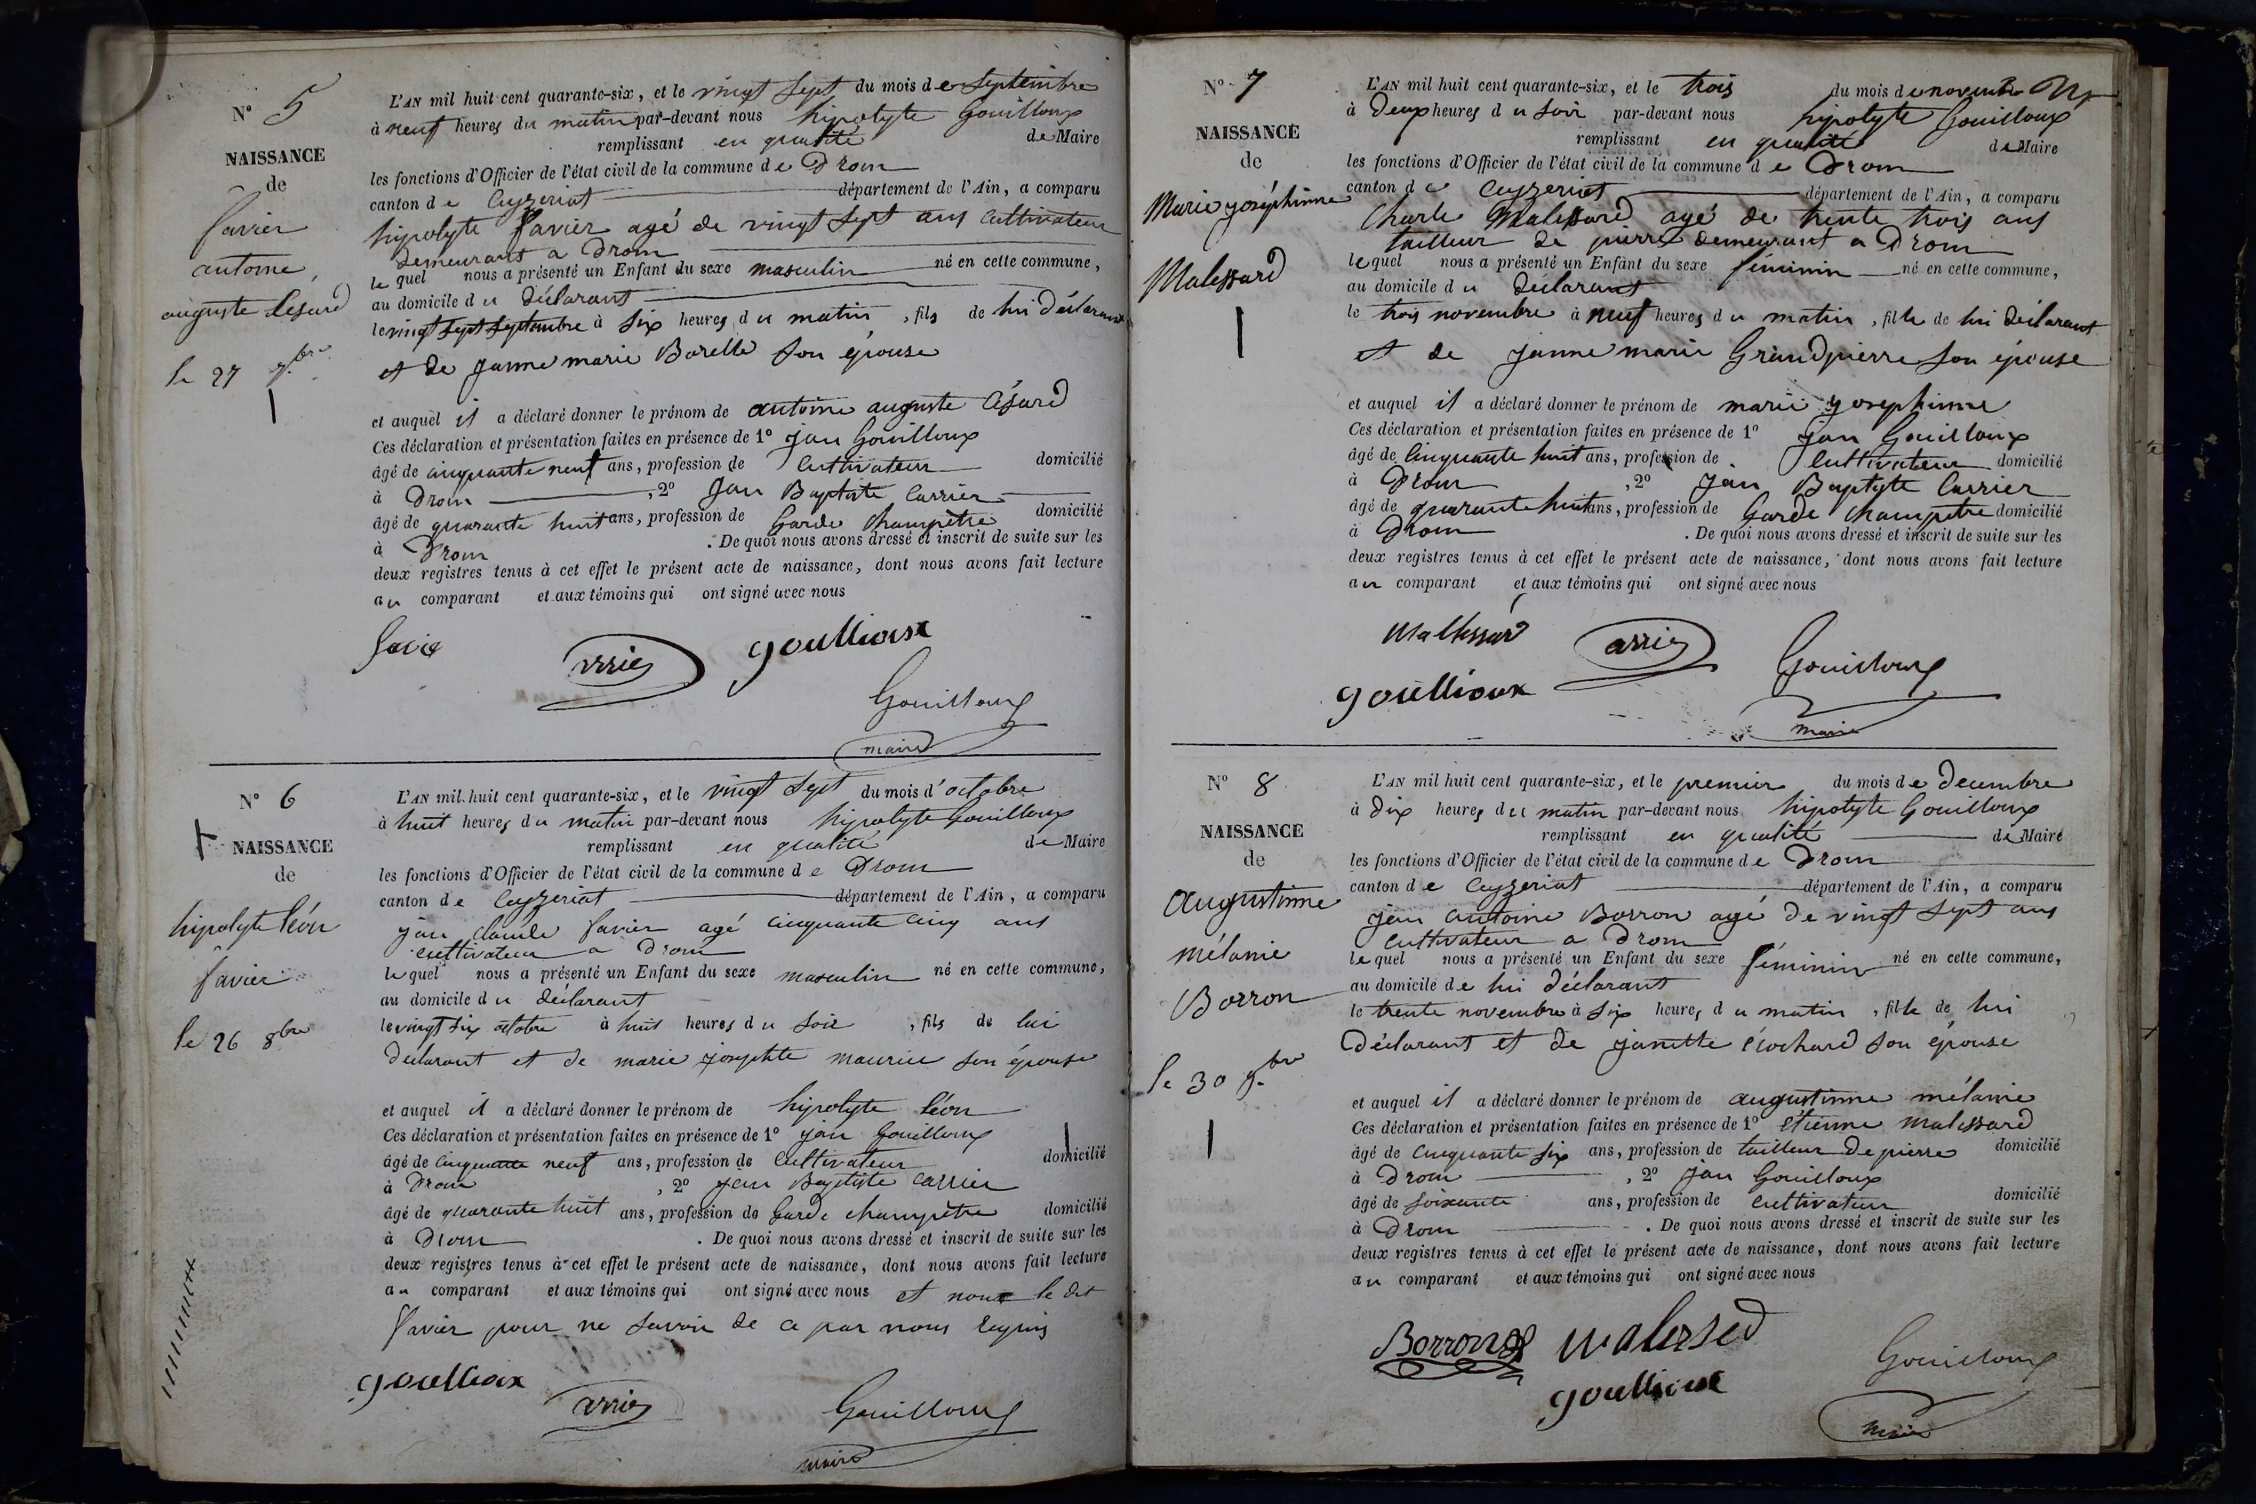 N° 5
NAISSANCE
de
favier
antoine
auguste Césard
le 27 7.bre
L'AN mil huit cent quarante-six, et le vingt sept du mois de septembre
à neuf heures du matin par-devant nous hipolyte Gouilloux
remplissant en qualité de Maire
les fonctions d'Officier de l'état civil de la commune de Drom
canton de Ceyzeriat département de l'Ain, a comparu
hipolyte favier agé de vingt sept ans cultivateur
demeurant a Drom
lequel nous a présenté un Enfant du sexe masculin né en cette commune,
au domicile du déclarant
le vingt sept septembre à six heures du matin, fils de lui déclarant
et de Janne marie Borelle son épouse
et auquel il a déclaré donner le prénom de antoine auguste Césard
Ces déclaration et présentation faites en présence de 1° jan Gouilloux
âgé de cinquante neuf ans, profession de cultivateur domicilié
à Drom, 2° Jan Baptiste Carrier
âgé de quarante huit ans, profession de Garde champètre domicilié
à Drom. De quoi nous avons dressé et inscrit de suite sur les
deux registres tenus à cet effet le présent acte de naissance, dont nous avons fait lecture
au comparant et aux témoins qui ont signé avec nous
favie
goullioux
Gouilloux
maire
N° 6
NAISSANCE
de
hipolyte léon
favier
le 26 8bre
L'AN mil huit cent quarante-six, et le vingt sept du mois d'octobre
à huit heures du matin par-devant nous hipolyte Gouilloux
remplissant en qualité de Maire
les fonctions d'Officier de l'état civil de la commune de Drom
canton de Ceyzeriat département de l'Ain, a comparu
jan claude favier agé cinquante cinq ans
cultivateur a Drom
lequel nous a présenté un Enfant du sexe masculin né en cette commune,
au domicile du déclarant
le vingt six octobre à huit heures du soir, fils de lui
declarant et de marie josephte maurice son épouse
et auquel il a déclaré donner le prénom de hipolyte léon
Ces déclaration et présentation faites en présence de 1° jan Gouilloux
âgé de cinquante neuf ans, profession de cultivateur domicilié
à Drom, 2° jan Baptiste Carrier
âgé de quarante huit ans, profession de Garde champètre domicilié
à Drom. De quoi nous avons dressé et inscrit de suite sur les
deux registres tenus à cet effet le présent acte de naissance, dont nous avons fait lecture
au comparant et aux témoins qui ont signé avec nous et le dit
favier pour ne savoir de ce par nous requis
goullioux
Gouilloux
maire
N° 7
NAISSANCE
de
Marie joséphinne
Malessard
L'AN mil huit cent quarante-six, et le trois du mois de novembre
à Deux heures du soir par-devant nous hipolyte Gouilloux
remplissant en qualité de Maire
les fonctions d'Officier de l'état civil de la commune de Drom
canton de Ceyzeriat département de l'Ain, a comparu
Charle Malessard agé de trente trois ans
tailleur de pierre demeurant a Drom
lequel nous a présenté un Enfant du sexe féminin né en cette commune,
au domicile du déclarant
le trois novembre à neuf heures du matin, fille de lui déclarant
et de janne marie Grandpierre son épouse
et auquel il a déclaré donner le prénom de marie josephinne
Ces déclaration et présentation faites en présence de 1° jan Gouilloux
âgé de cinquante huit ans, profession de cultivateur domicilié
à Drom, 2° jan Baptyte Carrier
âgé de quarante huit ans, profession de Garde champetre domicilié
à Drom. De quoi nous avons dressé et inscrit de suite sur les
deux registres tenus à cet effet le présent acte de naissance, dont nous avons fait lecture
au comparant et aux témoins qui ont signé avec nous
Malessard
goullioux
Gouilloux
maire
N° 8
NAISSANCE
de
augustinne
mélanie
Borron
le 30 9.bre
L'AN mil huit cent quarante-six, et le premier du mois de decembre
à dix heures du matin par-devant nous hipolyte Gouilloux
remplissant en qualité de Maire
les fonctions d'Officier de l'état civil de la commune de Drom
canton de Ceyzeriat département de l'Ain, a comparu
jean antoine Borron agé de vingt sept ans
cultivateur a Drom
lequel nous a présenté un Enfant du sexe féminin né en cette commune,
au domicile de lui déclarant
le trente novembre à six heures du matin, fille de lui
Déclarant et de janette Écochard son épouse
et auquel il a déclaré donner le prénom de augustinne mélanie
Ces déclaration et présentation faites en présence de 1° étienne malessard
âgé de cinquante six ans, profession de tailleur de pierre domicilié
à Drom, 2° jan Gouilloux
âgé de soixante ans, profession de cultivateur domicilié
à Drom. De quoi nous avons dressé et inscrit de suite sur les
deux registres tenus à cet effet le présent acte de naissance, dont nous avons fait lecture
au comparant et aux témoins qui ont signé avec nous
Borron malessed
goullioux
Gouilloux
maire